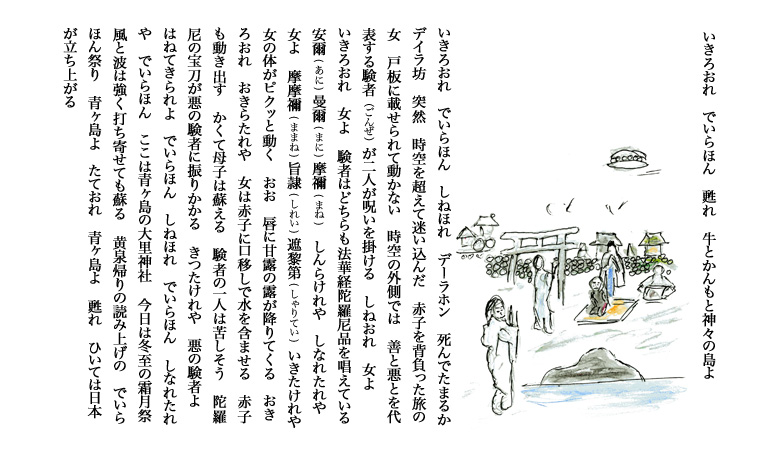 いきろおれ　でいらほん　甦れ　牛とかんもと神々の島よ
いきろおれ　でいらほん　しねほれ　デーラホン　死んでたまるか
デイラ坊　突然　時空を超えて迷い込んだ　赤子を背負った旅の
女　戸板に載せられて動かない　時空の外側では　善と悪とを代
表する験者（こんぜ）が二人が呪いを掛ける　しねおれ　女よ
いきろおれ　女よ　験者はどちらも法華経陀羅尼品を唱えている
安爾（あに）曼爾（まに）摩禰（まね）　しんらけれや　しなれたれや
女よ　摩摩禰（ままね）旨隷（しれい）遮黎第（しゃりてい）いきたけれや
女の体がピクッと動く　おお　唇に甘露の露が降りてくる　おき
ろおれ　おきらたれや　女は赤子に口移しで水を含ませる　赤子
も動き出す　かくて母子は蘇える　験者の一人は苦しそう　陀羅
尼の宝刀が悪の験者に振りかかる　きつたけれや　悪の験者よ
はねてきられよ　でいらほん　しねほれ　でいらほん　しなれたれ
や　でいらほん　ここは青ヶ島の大里神社　今日は冬至の霜月祭
風と波は強く打ち寄せても蘇る　黄泉帰りの読み上げの　でいら
ほん祭り　青ヶ島よ　たておれ　青ヶ島よ　甦れ　ひいては日本
が立ち上がる